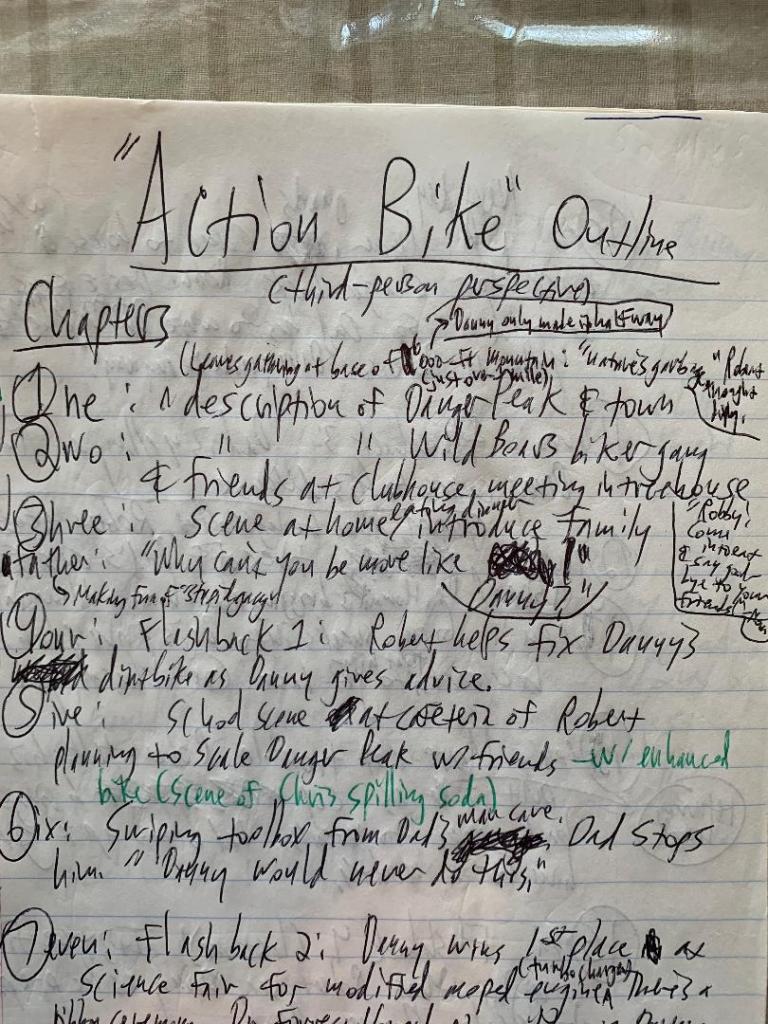 "Action Bike" Outline
(third-person perspective)
Chapters
→ Danny only made it halfway
(Leaves gathering at base of 6000-ft mountain: "nature's garbage" Robert thought
(just over 1 mile)
①ne: A description of Danger Peak & town
②wo: " " Wild Boars biker gang
& friends at clubhouse, meeting in treehouse
③hree: Scene at home/eating dinner introduce family
Father: "Why can't you be more like Danny?"
"Robby!
Come
say good
bye to your
friends
→ Making fun of
④our: Flashback 1: Robert helps fix Danny's
dirtbike as Danny gives advice.
⑤ive: School scene at cafeteria of Robert
planning to scale Danger Peak w/ friends – w/ enhanced
bike (scene of Chris spilling soda)
⑥ix: Swiping toolbox from Dad's man cave. Dad stops
him. "Danny would never do this."
⑦even: Flashback 2: Danny wins 1st place at
Science Fair for modified moped engine (turbocharger) There's a
ribbon ceremony.